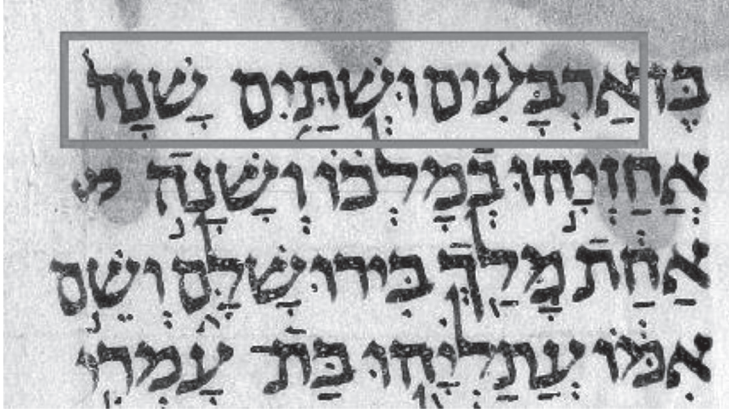 בֶּן אַרְבָּעִים וּשְׁתַּיִם שָׁנָה
אֲחַזְיָהוּ בְמָלְכוֹ וְשָׁנָה
אַחַת מָלַךְ בִּירוּשָׁלִָם וְשֵׁם
אִמּוֹ עֲתַלְיָהוּ בַּת־ עָמְרִי